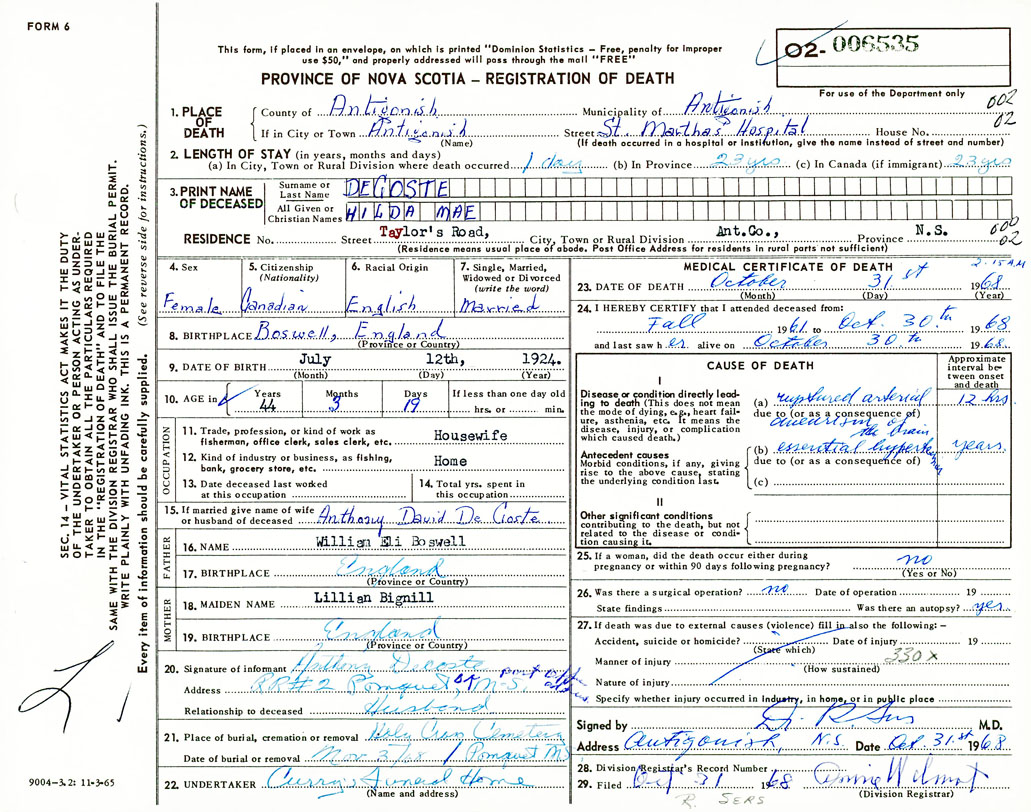 FORM 6
This form, if placed in an envelope, on which is printed "Dominion Statistics – Free, penalty for improper
use $50," and properly addressed will pass through the mail "FREE"
PROVINCE OF NOVA SCOTIA – REGISTRATION OF DEATH
02- 006535
For use of the Department only
002
02
1. PLACE OF DEATH
County of Antigonish Municipality of Antigonish
If in City or Town Antigonish Street St. Martha's Hospital House No.
(Name) (If death occurred in a hospital or institution, give the name instead of street and number)
2. LENGTH OF STAY (in years, months and days)
(a) In City, Town or Rural Division where death occurred 1 day (b) In Province 23 yrs (c) In Canada (if immigrant) 23 yrs
3. PRINT NAME OF DECEASED
Surname or Last Name DECOSTE
All Given or Christian Names HILDA MAE
RESIDENCE No. Street Taylor's Road, City, Town or Rural Division Ant.Co., Province N.S.
000
02
(Residence means usual place of abode. Post Office Address for residents in rural parts not sufficient)
4. Sex
Female
5. Citizenship
(Nationality)
Canadian
6. Racial Origin
English
7. Single, Married,
Widowed or Divorced
(write the word)
Married
8. BIRTHPLACE Boswell, England
(Province or Country)
9. DATE OF BIRTH July 12th, 1924.
(Month) (Day) (Year)
10. AGE in Years Months Days If less than one day old
44 3 19 hrs. or min.
OCCUPATION
11. Trade, profession, or kind of work as
fisherman, office clerk, sales clerk, etc. Housewife
12. Kind of industry or business, as fishing,
bank, grocery store, etc. Home
13. Date deceased last worked
at this occupation
14. Total yrs. spent in
this occupation
15. If married give name of wife
or husband of deceased Anthony David De Coste
FATHER
16. NAME William Eli Boswell
17. BIRTHPLACE England
(Province or Country)
MOTHER
18. MAIDEN NAME Lillian Bignill
19. BIRTHPLACE England
(Province or Country)
20. Signature of informant Anthony Decoste
Address RR#2 Pomquet, N.S. post office
Relationship to deceased Husband
21. Place of burial, cremation or removal Holy Cross Cemetery
Date of burial or removal Nov 3/68 Pomquet NS
22. UNDERTAKER Curry's Funeral Home
(Name and address)
MEDICAL CERTIFICATE OF DEATH
2.15 A.M
23. DATE OF DEATH October 31st 1968
(Month) (Day) (Year)
24. I HEREBY CERTIFY that I attended deceased from:
Fall 1961 to Oct. 30th 1968
and last saw her alive on October 30th 1968.
CAUSE OF DEATH
Approximate
interval be-
tween onset
and death
I
Disease or condition directly lead-
ing to death (This does not mean
the mode of dying, e.g., heart fail-
ure, asthenia, etc. It means the
disease, injury, or complication
which caused death.)
(a) ruptured arterial 12 hrs
due to (or as a consequence of)
aneurism of
the brain
Antecedent causes
Morbid conditions, if any, giving
rise to the above cause, stating
the underlying condition last.
(b) essential hypertension years.
due to (or as a consequence of)
(c)
II
Other significant conditions
contributing to the death, but not
related to the disease or condi-
tion causing it.
25. If a woman, did the death occur either during
pregnancy or within 90 days following pregnancy? no
(Yes or No)
26. Was there a surgical operation? no Date of operation 19
State findings Was there an autopsy? yes
27. If death was due to external causes (violence) fill in also the following: –
Accident, suicide or homicide? Date of injury 19
(State which)
Manner of injury 330 X
(How sustained)
Nature of injury
Specify whether injury occurred in industry, in home, or in public place
Signed by Dr. R. Sers M.D.
Address Antigonish, N.S. Date Oct. 31st 1968
28. Division Registrar's Record Number
29. Filed Oct 31 1968 Wilmot
(Division Registrar)
R. SERS
SEC. 14 – VITAL STATISTICS ACT MAKES IT THE DUTY
OF THE UNDERTAKER OR PERSON ACTING AS UNDER-
TAKER TO OBTAIN ALL THE PARTICULARS REQUIRED
IN THE "REGISTRATION OF DEATH" AND TO FILE THE
SAME WITH THE DIVISION REGISTRAR WHO SHALL ISSUE THE BURIAL PERMIT.
WRITE PLAINLY WITH UNFADING INK. THIS IS A PERMANENT RECORD.
Every item of information should be carefully supplied. (See reverse side for instructions.)
9004–3.2: 11-3-65